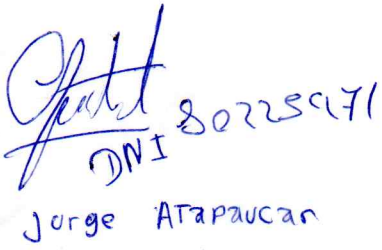 DNI 80225971
Jorge ATAPAUCAR